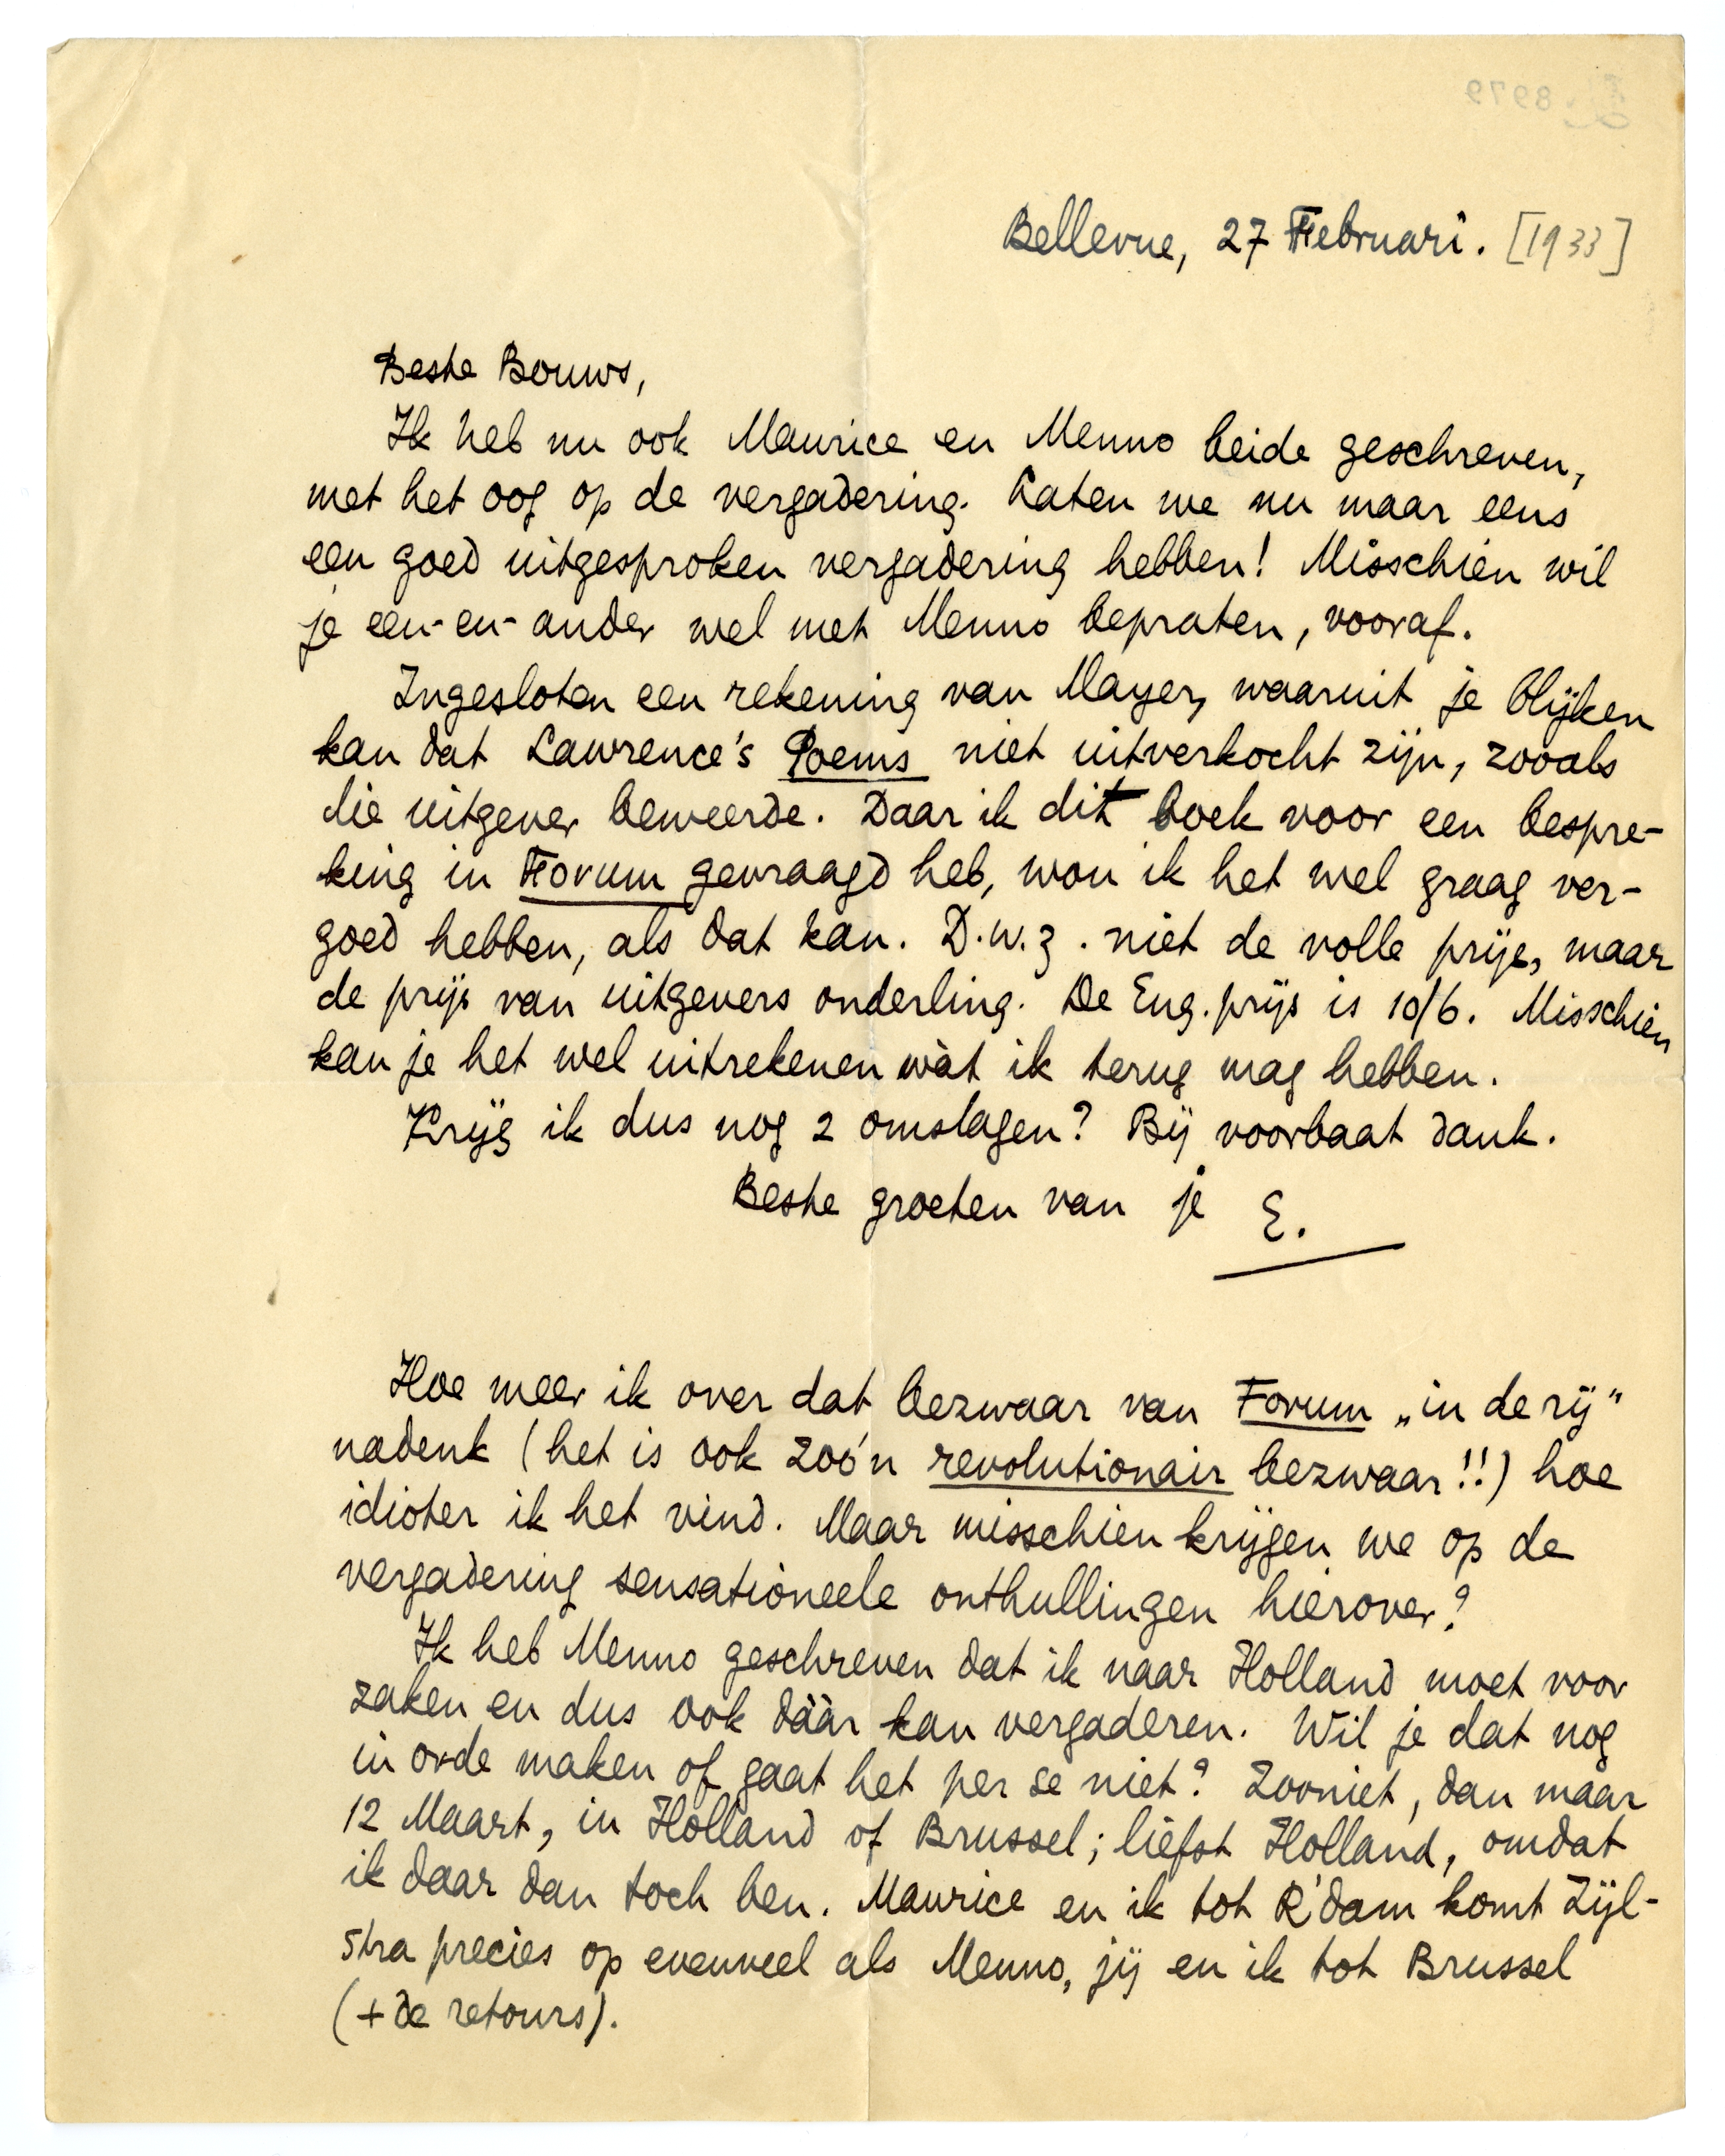 Bellevue, 27 Februari. [1933]
Beste Bouws,
Ik heb nu ook Maurice en Menno beide geschreven,
met het oog op de vergadering. Laten we nu maar eens
een goed uitgesproken vergadering hebben! Misschien wil
je een-en-ander wel met Menno bepraten, vooraf.
Ingesloten een rekening van Mayer, waaruit je blijken
kan dat Lawrence's Poems niet uitverkocht zijn, zooals
die uitgever beweerde. Daar ik dit boek voor een bespre-
king in Forum gevraagd heb, wou ik het wel graag ver-
goed hebben, als dat kan. D.w.z. niet de volle prijs, maar
de prijs van uitgevers onderling. De Eng. prijs is 10/6. Misschien
kan je het wel uitrekenen wàt ik terug mag hebben.
Krijg ik dus nog 2 omslagen? Bij voorbaat dank.
Beste groeten van je E.
Hoe meer ik over dat bezwaar van Forum „in de rij”
nadenk (het is ook zoó'n revolutionair bezwaar!!) hoe
idioter ik het vind. Maar misschien krijgen we op de
vergadering sensationeele onthullingen hierover?
Ik heb Menno geschreven dat ik naar Holland moet voor
zaken en dus ook dààr kan vergaderen. Wil je dat nog
in orde maken of gaat het per se niet? Zooniet, dan maar
12 Maart, in Holland of Brussel; liefst Holland, omdat
ik daar dan toch ben. Maurice en ik tot R'dam komt Zijl-
stra precies op evenveel als Menno, jij en ik tot Brussel
(+ de retours).
8979